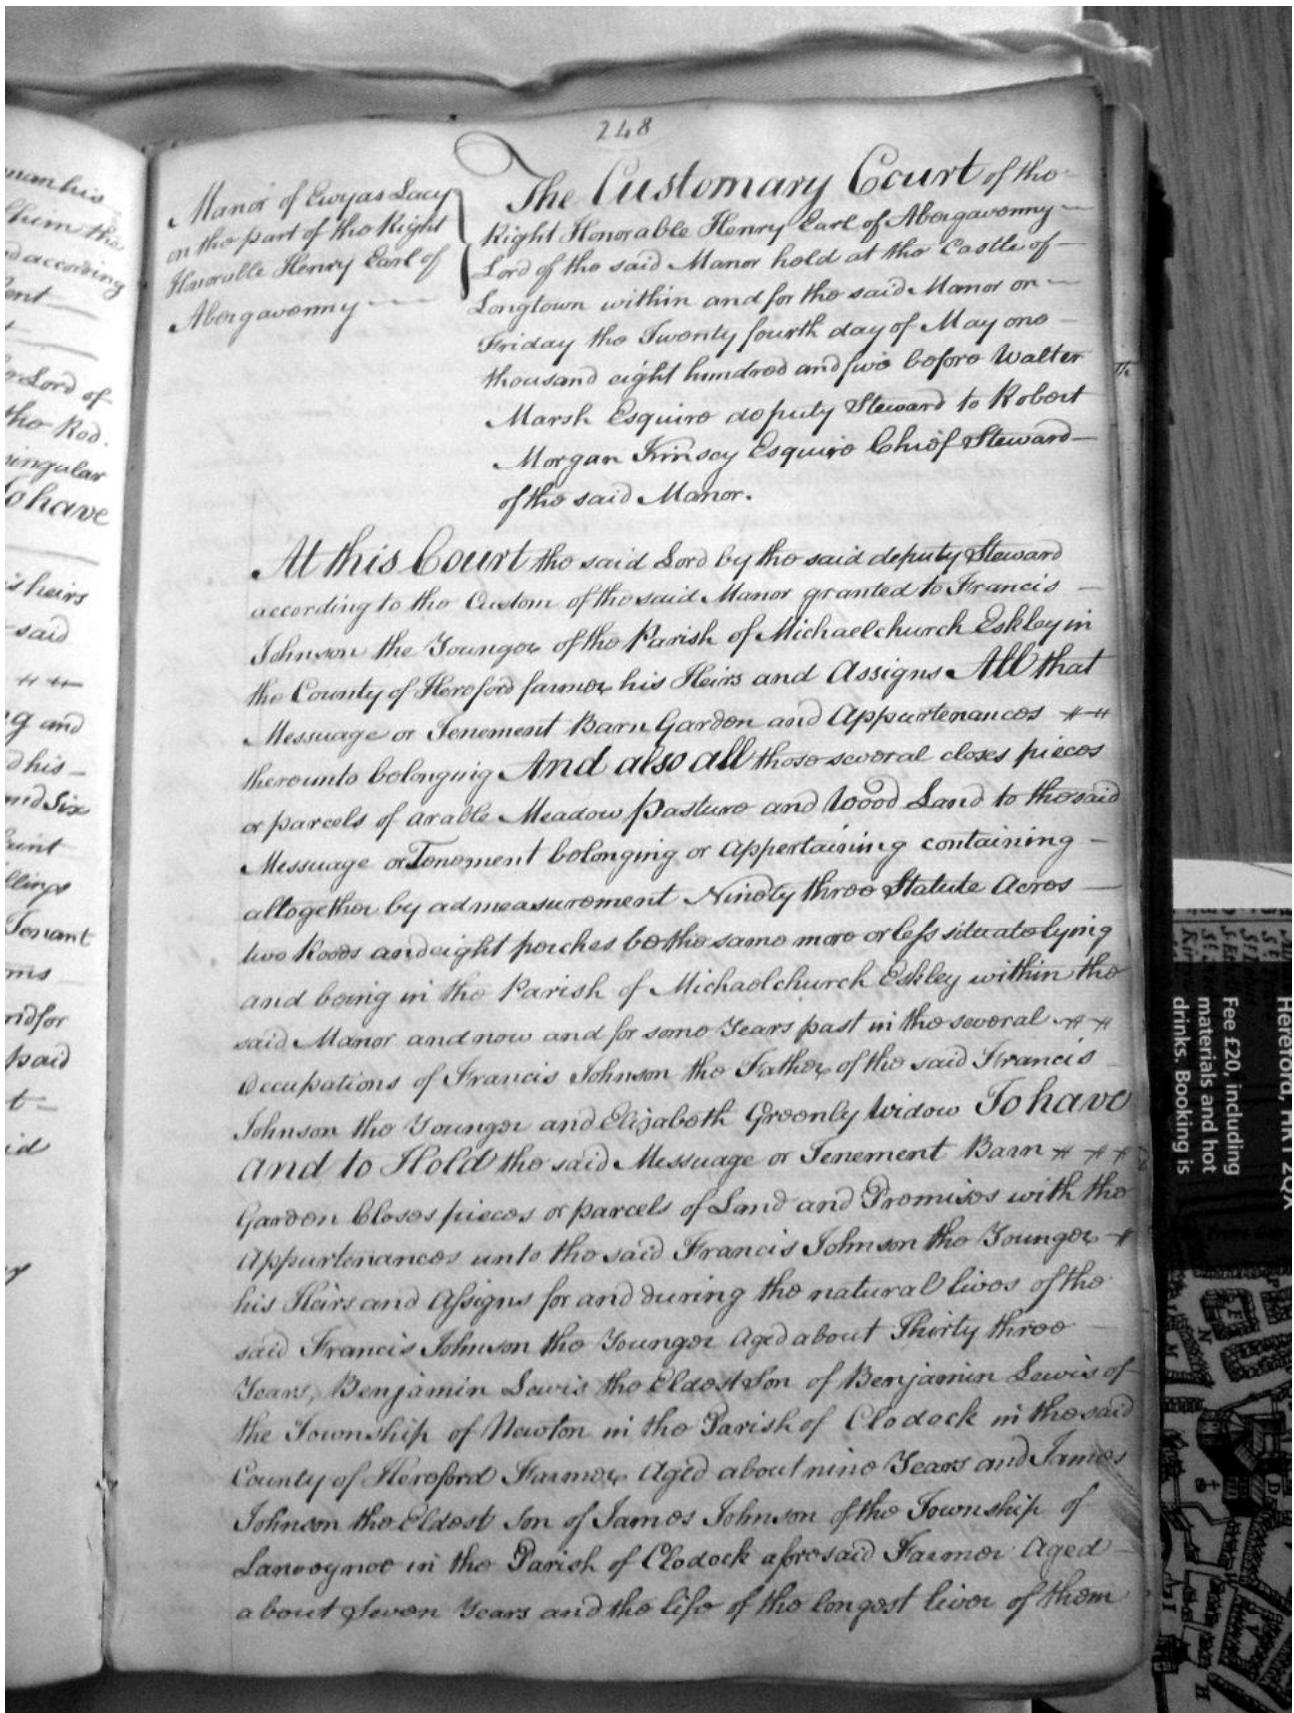 248
Manor of Ewyas Lacy
on the part of the Right
Honorable Henry Earl of
Abergavenny
The Customary Court of the
Right Honorable Henry Earl of Abergavenny
Lord of the said Manor held at the Castle of
Longtown within and for the said Manor on
Friday the Twenty fourth day of May one
thousand eight hundred and five before Walter
Marsh Esquire deputy Steward to Robert
Morgan Kinsey Esquire Chief Steward
of the said Manor.
At this Court the said Lord by the said deputy Steward
according to the Custom of the said Manor granted to Francis
Johnson the Younger of the Parish of Michaelchurch Eskley in
the County of Hereford farmer his Heirs and Assigns All that
Messuage or Tenement Barn Garden and Appurtenances
thereunto belonging And also all those several closes pieces
or parcels of arable Meadow pasture and Wood Land to the said
Messuage or Tenement belonging or Appertaining containing
altogether by admeasurement Ninety three Statute Acres
two Roods and eight perches be the same more or less situate lying
and being in the Parish of Michaelchurch Eskley within the
said Manor and now and for some Years past in the several
Occupations of Francis Johnson the Father of the said Francis
Johnson the Younger and Elizabeth Greenly Widow To have
and to Hold the said Messuage or Tenement Barn
Garden Closes pieces or parcels of Land and Premises with the
Appurtenances unto the said Francis Johnson the Younger
his Heirs and Assigns for and during the natural lives of the
said Francis Johnson the Younger Aged about Thirty three
Years, Benjamin Lewis the Eldest Son of Benjamin Lewis of
the Township of Newton in the Parish of Clodock in the said
County of Hereford Farmer Aged about nine Years and James
Johnson the Eldest Son of James Johnson of the Township of
Lanveynoe in the Parish of Clodock aforesaid Farmer Aged
about Seven Years and the life of the longest liver of them
man his
according
Lord of
the Rod.
singular
to have
heirs
said
and
his
and Six
Tenant
paid
Hereford, HR1 2QX
Fee £20, including
materials and hot
drinks. Booking is